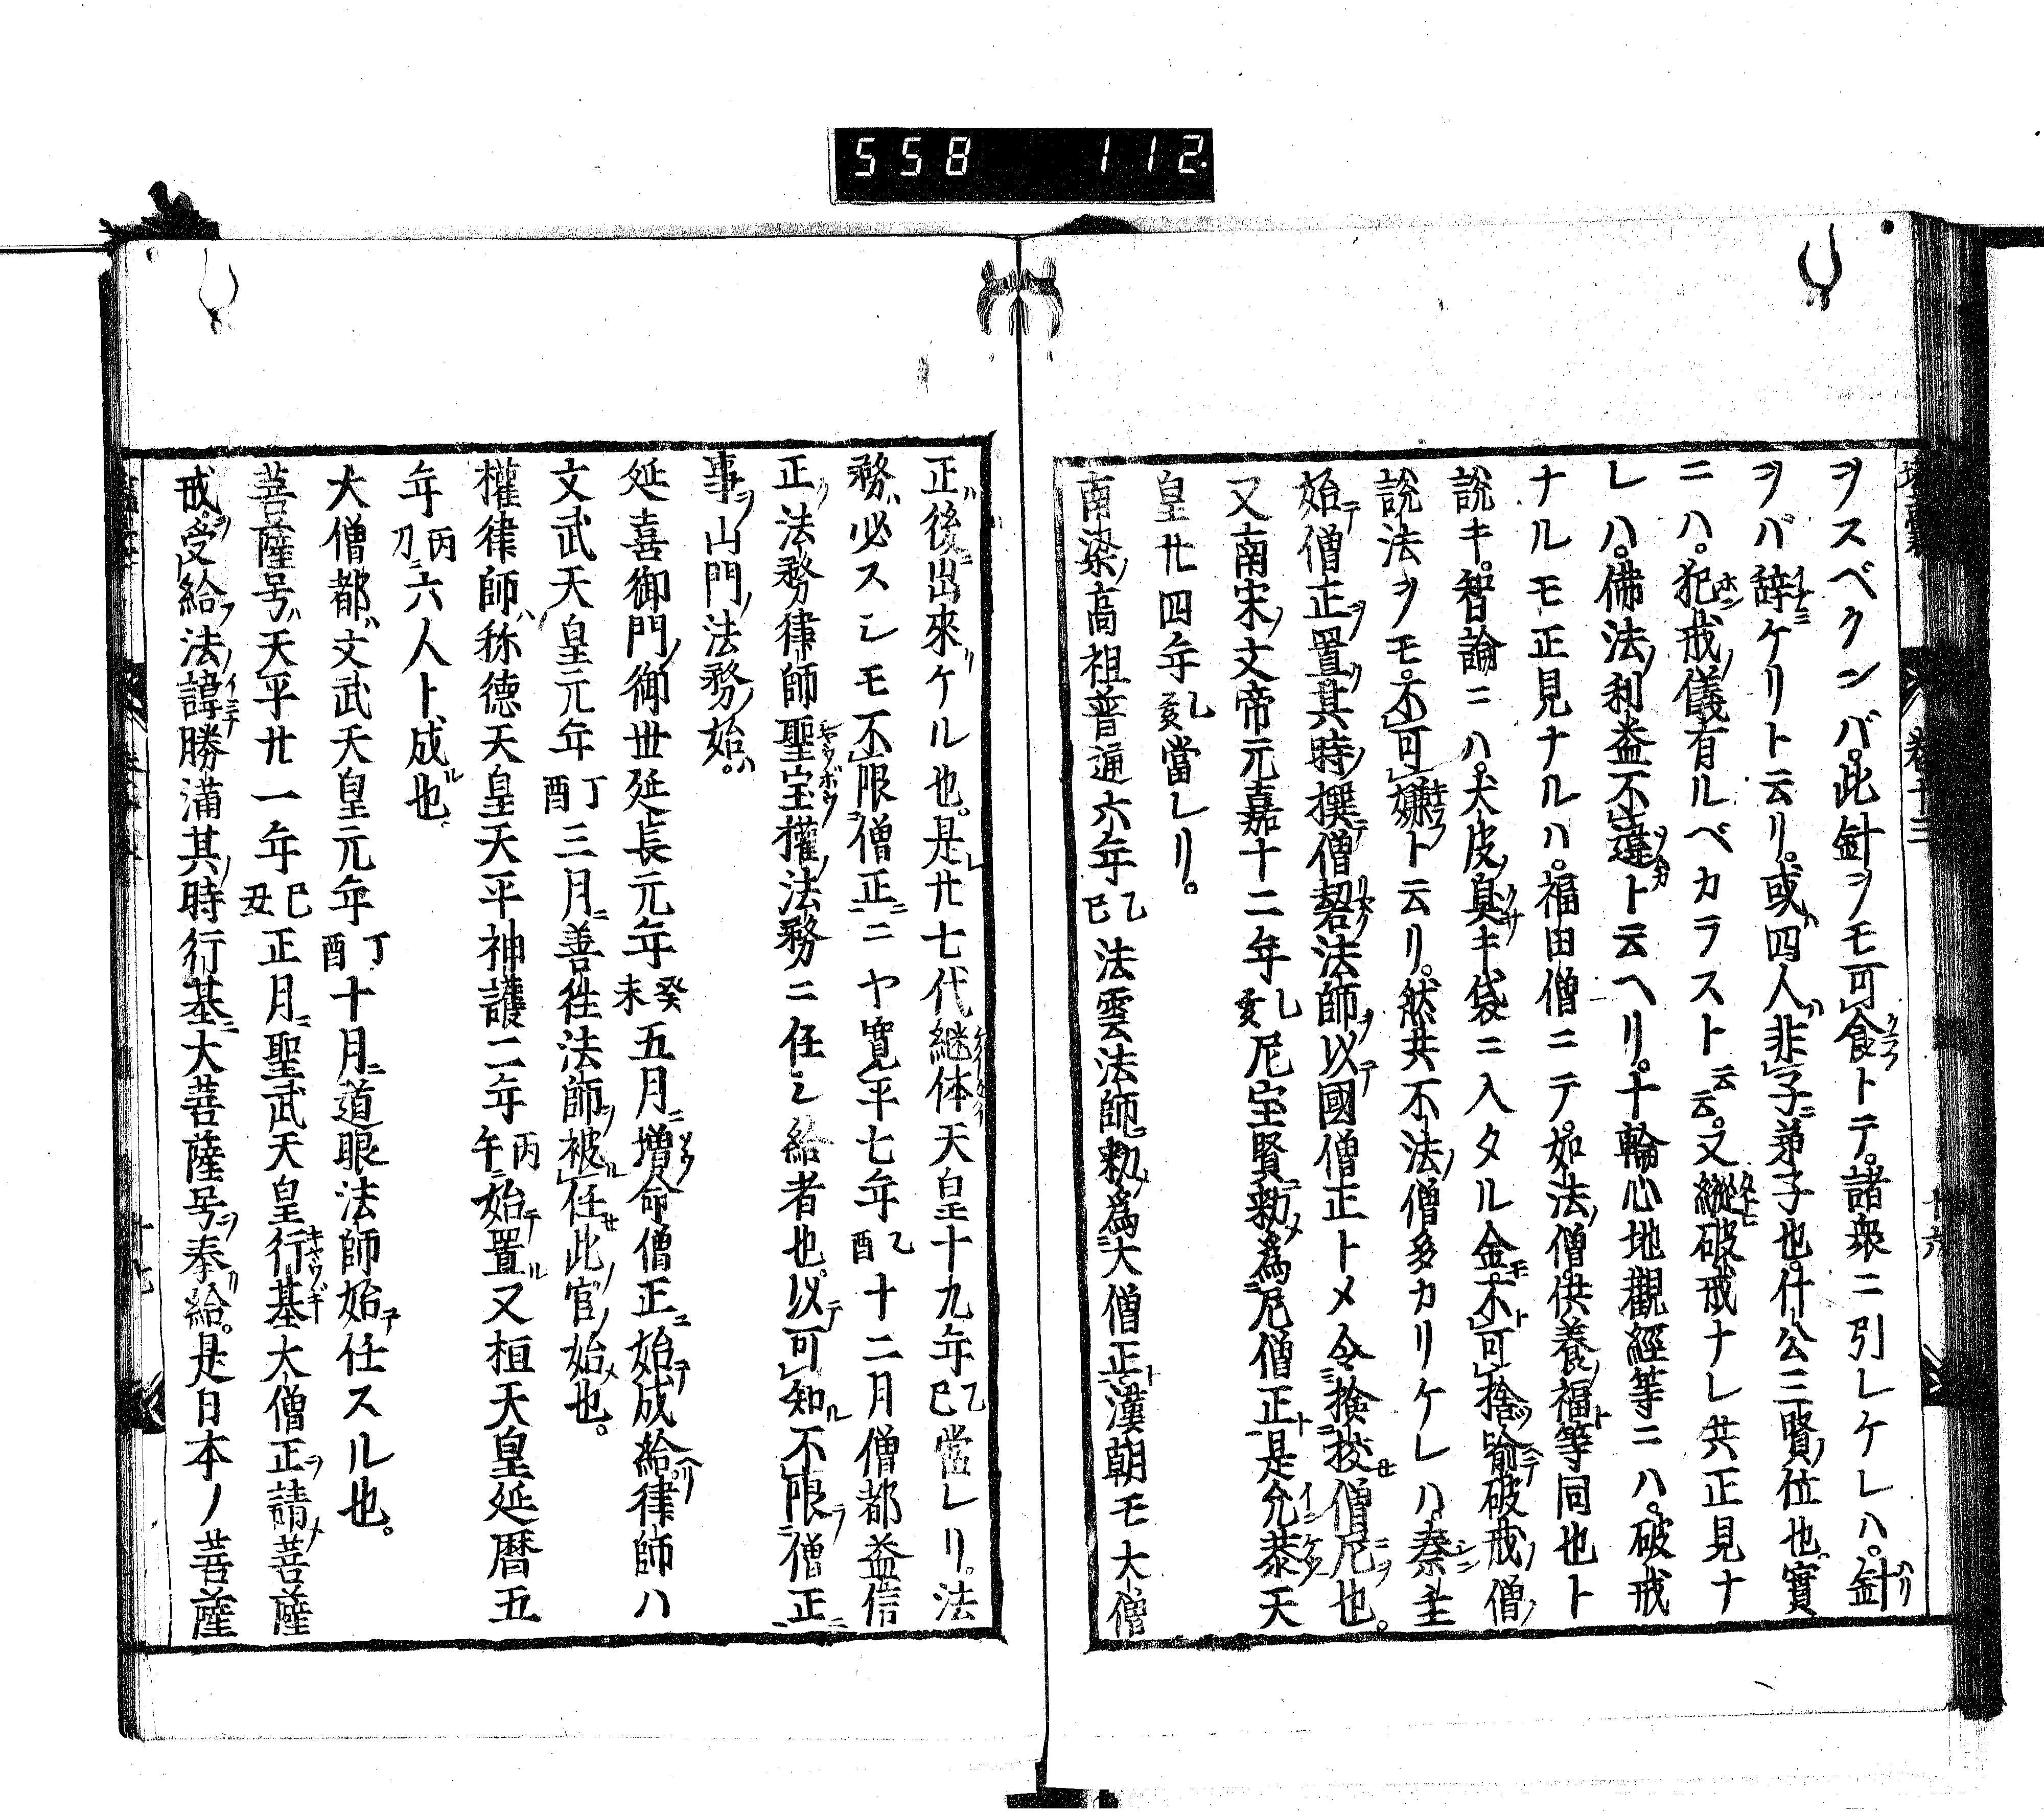 558 112.
ヲスベクンバ。此針ヲモ可食トテ。諸衆ニ引レケレハ。針
ヲバ辞ケリト云リ。或四人ハ非子弟子也。什公三賢ノ位也。實
ニハ。犯戒ノ儀有ルベカラスト云云。又縦破戒ナレ共正見ナ
レハ。佛法ノ利益不違ト云ヘリ。十輪心地觀經等ニハ。破戒
ナルモ正見ナルハ。福田僧ニテ。如法ノ僧供養ノ福ト等同也ト
說キ。智論ニハ。犬皮ノ臭キ袋ニ入タル金モ不可捨ツ喻ニテ破戒ノ僧ノ
說法ヲモ。不可嫌ト云リ。然共不法ノ僧多カリケレハ。秦主
始テ僧正ヲ置ク其時ノ撰ニテ僧䂮法師ヲ以テ國僧正トメ令ニ檢挍セ僧尼ヲ也。
又南宋ノ文帝元嘉十二年乙亥尼宝賢ニ勅メ為ニ尼僧正ト是允恭天
皇廿四年乙亥當レリ。
南梁ノ高祖普通六年乙巳法雲法師ニ勅メ為ニ大僧正ト漢朝モ大僧
正ハ後ニ出來リケル也。是レ廿七代継体天皇十九年乙巳當レリ。法
務ハ必スシモ不限ニ僧正ニニヤ寛平七年乙酉十二月僧都益信
正ノ法務律師聖宝權ノ法務ニ任シ給者也。以テ可知ル不限ラニ僧正ニ
事ヲ山門ノ法務ノ始ハ。
延喜御門ノ御世延長元年癸未五月ニ増命僧正ニ始テ成給ヘリ律師ハ
文武天皇元年丁酉三月ニ善徃法師ヲ被ル任セ此官ノ始メ也。
權律師ハ称德天皇天平神護二年丙午ニ始テ置ル又桓天皇延暦五
年丙刀ニ六人ト成ル也。
大僧都ハ文武天皇元年丁酉十月ニ道眼法師始テ任スル也。
菩薩号ハ天平廿一年己丑正月ニ聖武天皇行基大僧正ヲ請メ菩薩
戒ヲ受給フ法ノ諱勝滿其ノ時行基ニ大菩薩号ヲ奉リ給。是日本ノ菩薩